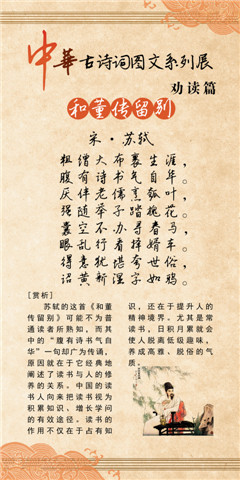 中華古诗词图文系列展
劝读篇
和董传留别
宋·苏轼
粗缯大布裹生涯，
腹有诗书气自华。
厌伴老儒烹瓠叶，
强随举子踏槐花。
囊空不办寻春马，
眼乱行看择婿车。
得意犹堪夸世俗，
诏黄新湿字如鸦。
[赏析]
苏轼的这首《和董
传留别》可能不为普
通读者所熟知，而其
中的“腹有诗书气自
华”一句却广为传诵，
原因就在于它经典地
阐述了读书与人的修
养的关系。中国的读
书人向来把读书视为
积累知识、增长学问
的有效途径。读书的
作用不仅在于占有知
识，还在于提升人的
精神境界。尤其是常
读书，日积月累就会
使人脱离低级趣味，
养成高雅、脱俗的气
质。